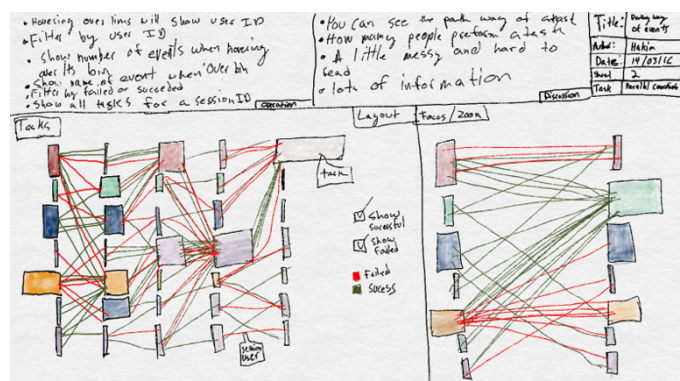 • Hovering over lines will show user ID
• Filter by user ID
• Show number of events when hovering
over its bin
• Show name of event when over bin
• Filter by failed or succeded
• Show all tasks for a session ID
operation
• You can see the path way of a task
• How many people preform a task
• A little messy and hard to
read
• lots of information
Discussion
Title:
of events
Author: Hakim
Date: 14/03/16
Sheet 2
Task Parallel Coordinate
Tasks
Layout
Focus/Zoom
task
show
sucessful
show
failed
Failed
Sucess
session
user